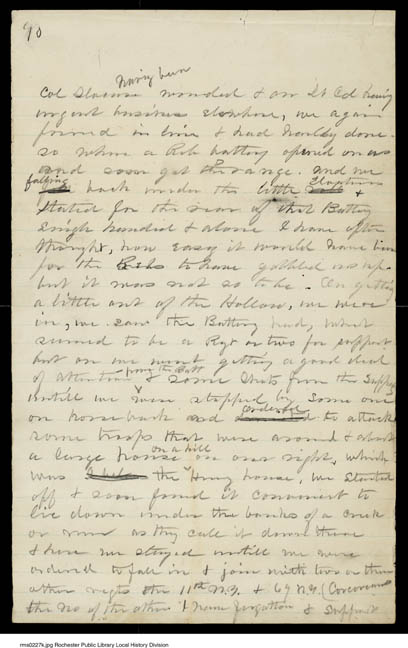 90
having been
Col Slocum wounded & our Lt Col having
urgent business elsewhere, we again
formed in line & had hardly done
so when a Reb battery opened on us
and soon got the range. and we
falling back under the little
started for the rear of that Battery
single handed & alone I have often
thought, how easy it would have been
for the Rebs to have gobbled us up.
but it was not so to be. On getting
a little out of the Hollow, we were
in, we saw the Battery had, what
seemed to be a Regt or two for support
but on we went getting a good deal
of attention from the Batt & some shots from the Support
untill we were stopped by some one
on horseback and ordered to attack
some troops that were around & about
a large house on a hill on our right, which
was the Henry house, we started
off & soon found it convenient to
lie down under the banks of a creek
or run as they call it down there
& here we stayed untill we were
ordered to fall in & join with two or three
other regts the 11th N.Y. & 69 N.Y. (Corcorans
the No of the other I have forgotten & Support
rms0227k.jpg Rochester Public Library Local History Division